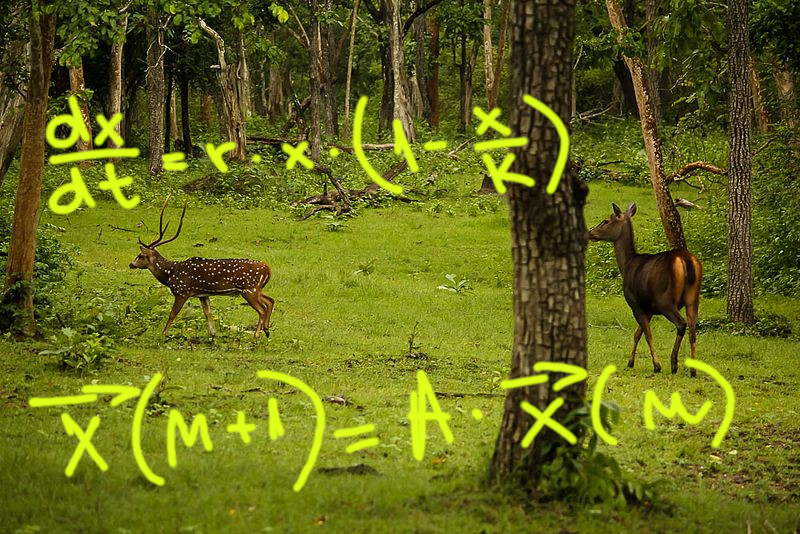 dx/dt = r · x · (1 - x/K)
x⃗(n+1) = A · x⃗(n)